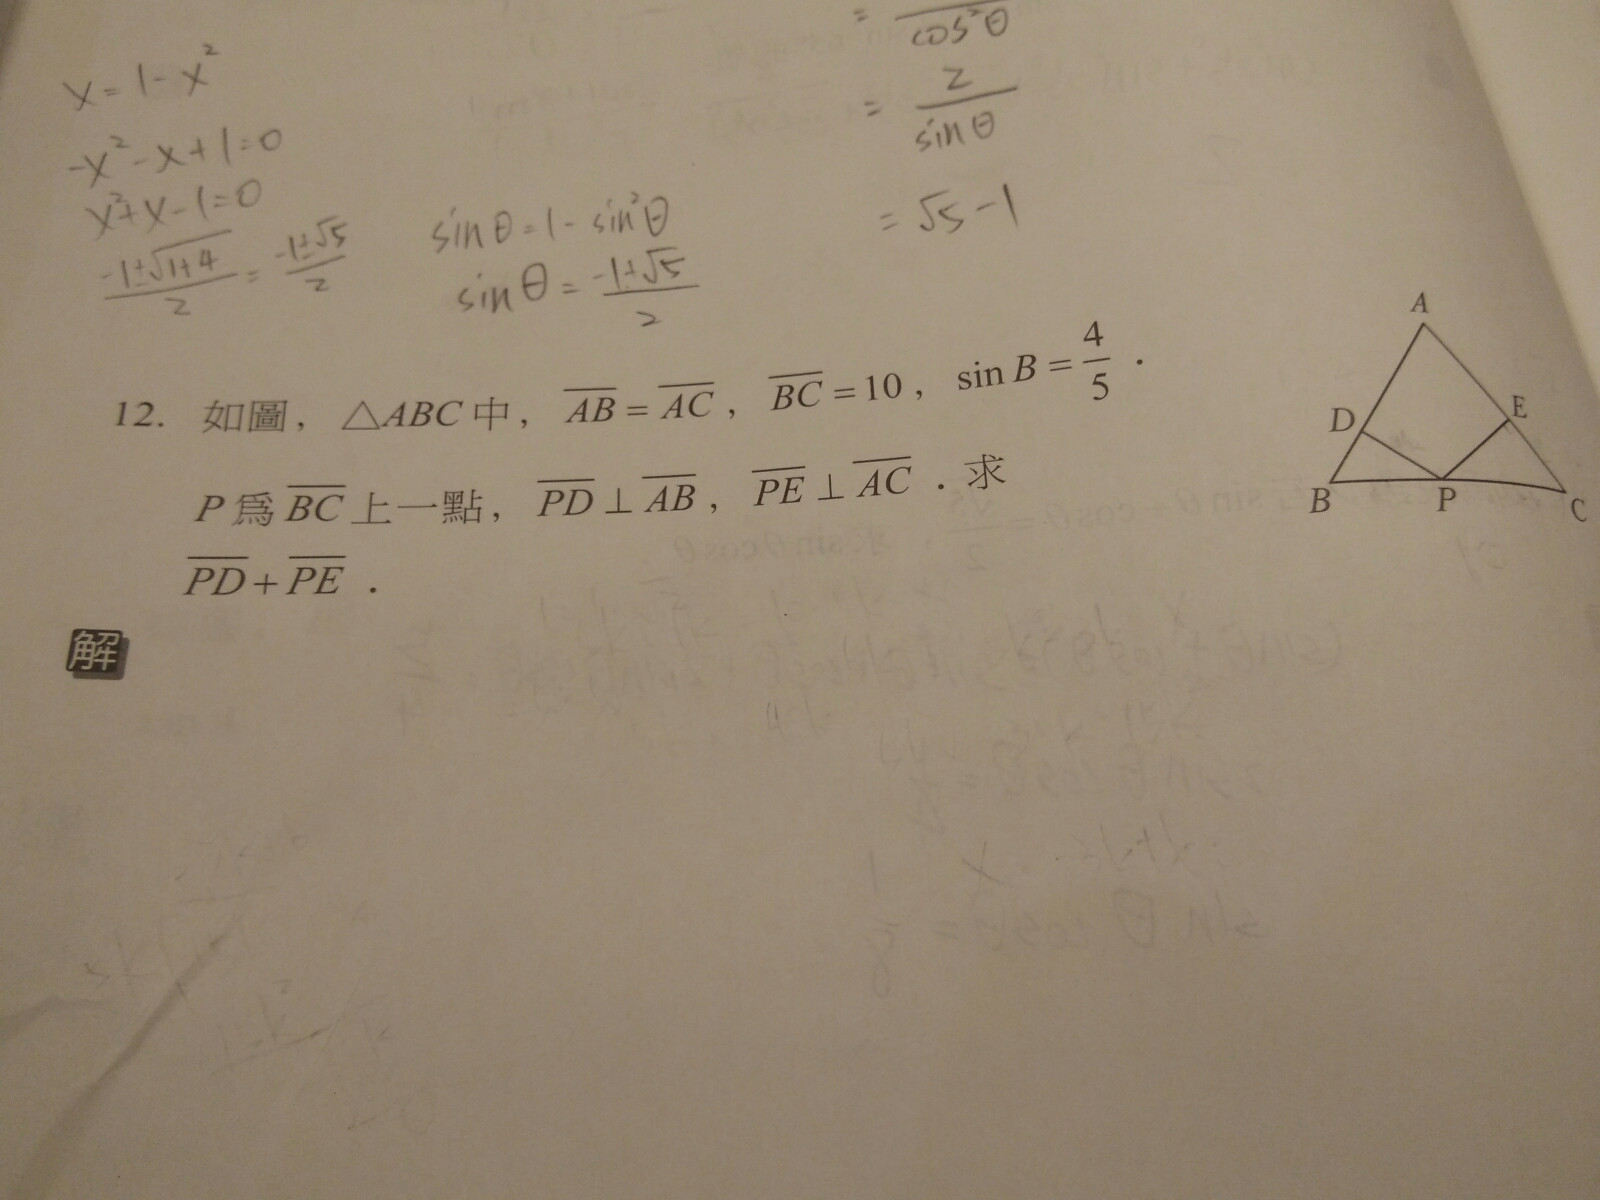 x = 1 - x²
-x² - x + 1 = 0
x² + x - 1 = 0
-1±√1+4 / 2 = -1±√5 / 2
sin θ = 1 - sin²θ
sin θ = -1±√5 / 2
= / cos²θ
= 2 / sin θ
= √5 - 1
12. 如圖，△ABC 中，AB = AC，BC = 10，sin B = 4/5．
P 為 BC 上一點，PD ⊥ AB，PE ⊥ AC．求
PD + PE．
A
D
E
B
P
C
解